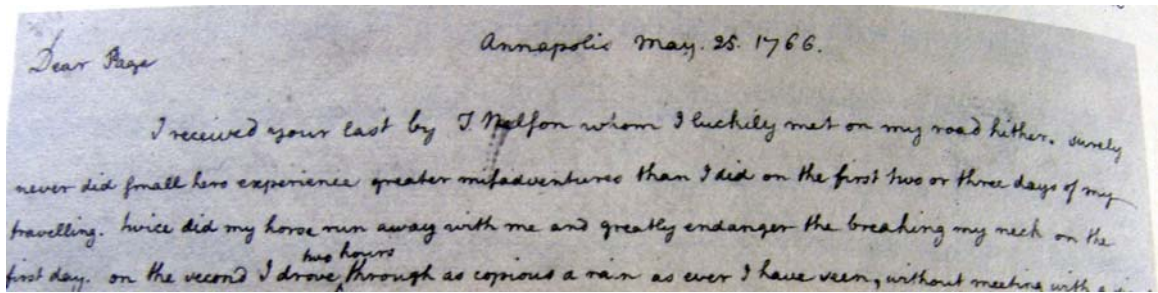 Annapolis May. 25. 1766.
Dear Page
I received your last by T. Nelson whom I luckily met on my road hither. surely
never did small hero experience greater misadventures than I did on the first two or three days of my
travelling. twice did my horse run away with me and greatly endanger the breaking my neck on the
two hours
first day. on the second I drove through as copious a rain as ever I have seen, without meeting with a